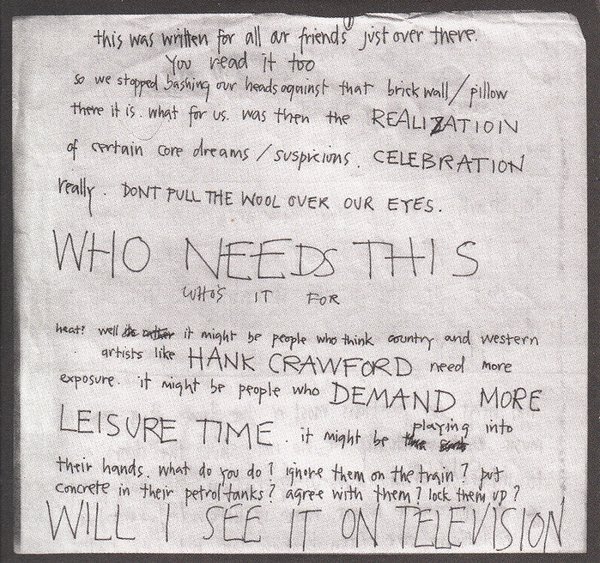 this was written for all our friends just over there.
you read it too
so we stopped bashing our heads against that brick wall/pillow
there it is. what for us. was then the REALIZATION
of certain core dreams/suspicions. CELEBRATION
really. DONT PULL THE WOOL OVER OUR EYES.
WHO NEEDS THIS
WHO'S IT FOR
heat? well it might be people who think country and western
artists like HANK CRAWFORD need more
exposure. it might be people who DEMAND MORE
LEISURE TIME. it might be playing into
their hands. what do you do? ignore them on the train? put
concrete in their petrol tanks? agree with them? lock them up?
WILL I SEE IT ON TELEVISION